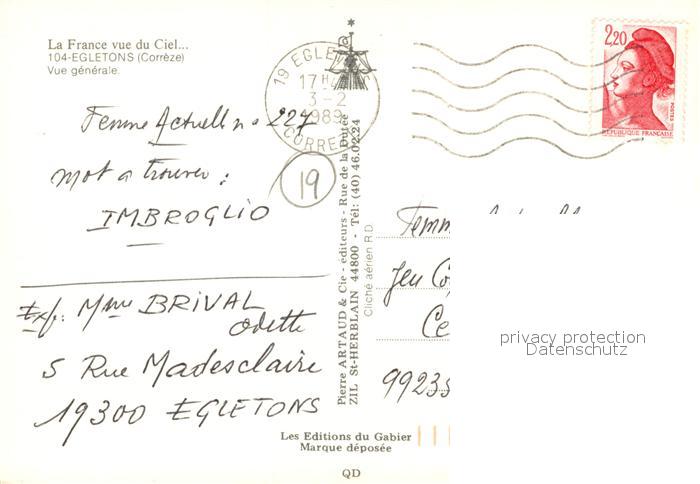 La France vue du Ciel...
104-EGLETONS (Corrèze)
Vue générale.
19 EGLETONS
17H
3-2
1989
CORREZE
2,20
POSTES
REPUBLIQUE FRANÇAISE
Femme Actuelle no 227
mot a trouver :
IMBROGLIO
19
Exp: Mme BRIVAL
Odette
5 Rue Madesclaire
19300 EGLETONS
Pierre ARTAUD & Cie - éditeurs - Rue de la Dutée
ZIL St-HERBLAIN 44800 - Tél: (40) 46.02.24
Cliché aérien R.D.
Femm
Jeu
Ce
99235
privacy protection
Datenschutz
Les Editions du Gabier
Marque déposée
QD